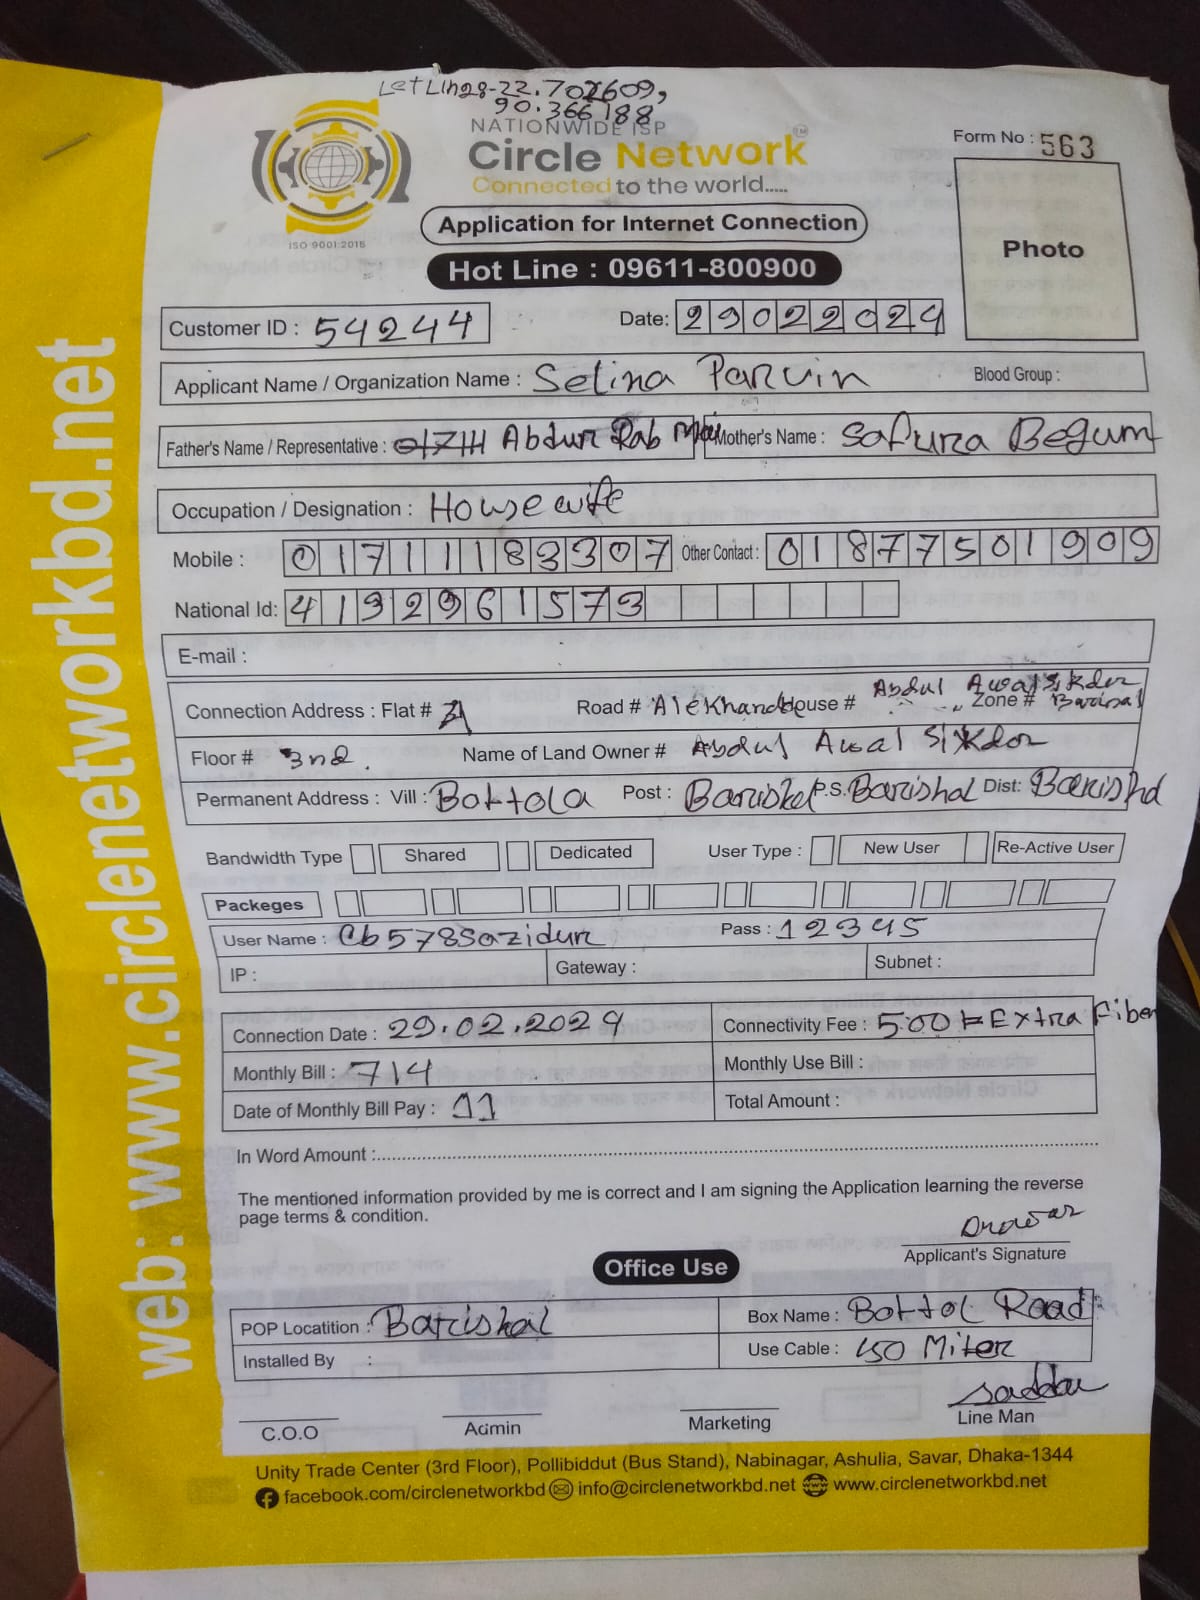 LetLing-22.702609,
90.366188
NATIONWIDE ISP
Circle Network
Connected to the world.....
ISO 9001:2015
Form No : 563
Photo
Application for Internet Connection
Hot Line : 09611-800900
Customer ID : 54244
Date: 29022024
Applicant Name / Organization Name : Selina Parvin Blood Group :
Father's Name / Representative : Abdur Rab Mother's Name : Safura Begum
Occupation / Designation : Housewife
Mobile : 01711183307 Other Contact : 01877501909
National Id: 4192961573
E-mail :
Connection Address : Flat # Road # Alekhanda House # Abdul Awal Sikder Zone # Barisal
Floor # 3nd. Name of Land Owner # Abdul Awal Sikdor
Permanent Address : Vill : Bottola Post : Barishal P.S. Barishal Dist: Barishal
Bandwidth Type Shared Dedicated User Type : New User Re-Active User
Packeges
User Name : Cb578Sazidur Pass : 12345
IP : Gateway : Subnet :
Connection Date : 29.02.2024 Connectivity Fee : 500 Extra Fiber
Monthly Bill : 714 Monthly Use Bill :
Date of Monthly Bill Pay : 11 Total Amount :
In Word Amount :
The mentioned information provided by me is correct and I am signing the Application learning the reverse
page terms & condition.
Applicant's Signature
Office Use
POP Locatition : Barishal Box Name : Bottol Road
Installed By : Use Cable : 150 Miter
C.O.O Admin Marketing Line Man
Unity Trade Center (3rd Floor), Pollibiddut (Bus Stand), Nabinagar, Ashulia, Savar, Dhaka-1344
facebook.com/circlenetworkbd info@circlenetworkbd.net www.circlenetworkbd.net
web: www.circlenetworkbd.net